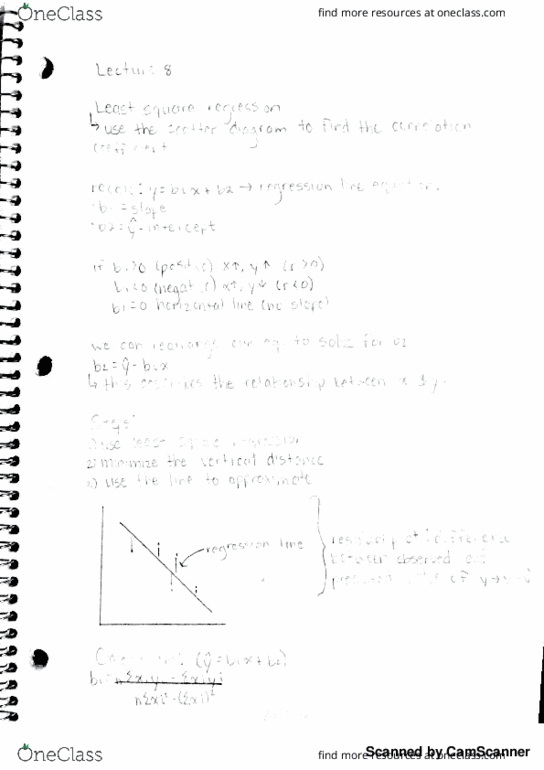 OneClass
find more resources at oneclass.com
Lecture 8
Least square regression
↳ use the scatter diagram to find the correlation
coefficient
recall: y = b1x + b2 → regression line equation.
b1 = slope
b2 = ŷ-intercept
if b1>0 (positive) x↑, y↑ (r>0)
b1<0 (negative) x↑, y↓ (r<0)
b1=0 horizontal line (no slope)
we can rearrange our eq. to solve for b2
b2 = ŷ - b1x
↳ this describes the relationship between x & y.
Steps:
1) use least square regression
2) minimize the vertical distance
3) use the line to approximate
regression line
difference
between observed
of y → y - ŷ
(ŷ = b1x + b2)
b1 = nΣxiyi - ΣxiΣyi
nΣxi² - (Σxi)²
OneClass
find more resources at oneclass.com
Scanned by CamScanner